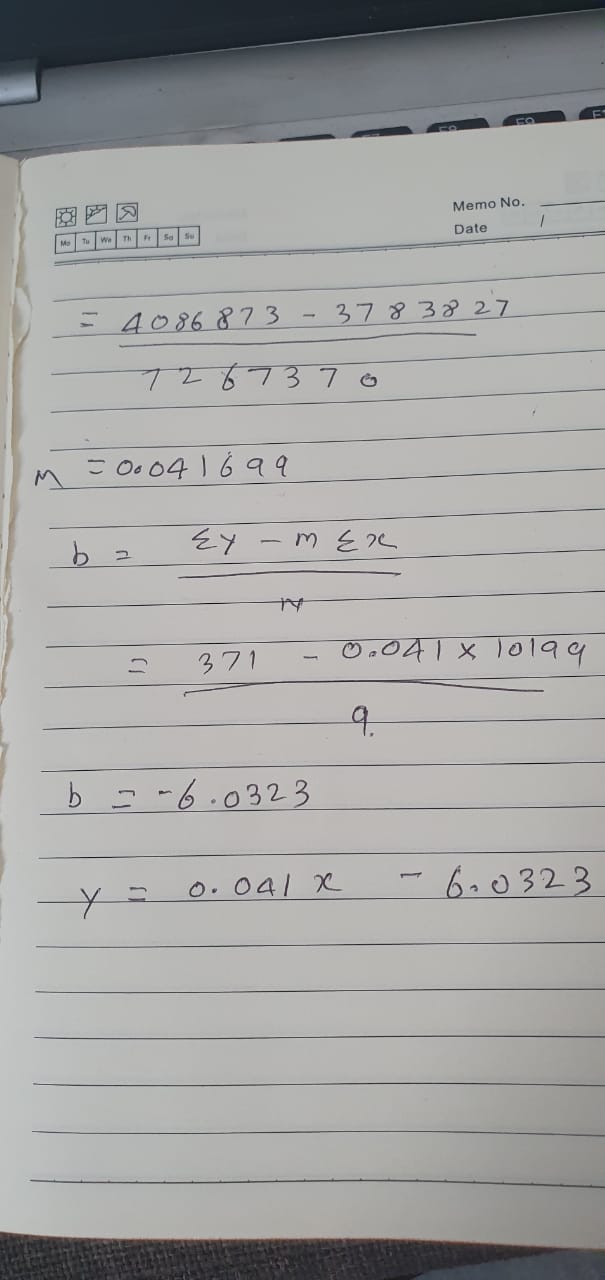 F8 F9
Memo No.
Mo Tu We Th Fr Sa Su
Date /
= 4086873 - 3783827
7267370
M = 0.041699
b = Σy - m Σx
N
= 371 - 0.041 x 10199
9.
b = -6.0323
y = 0.041 x - 6.0323